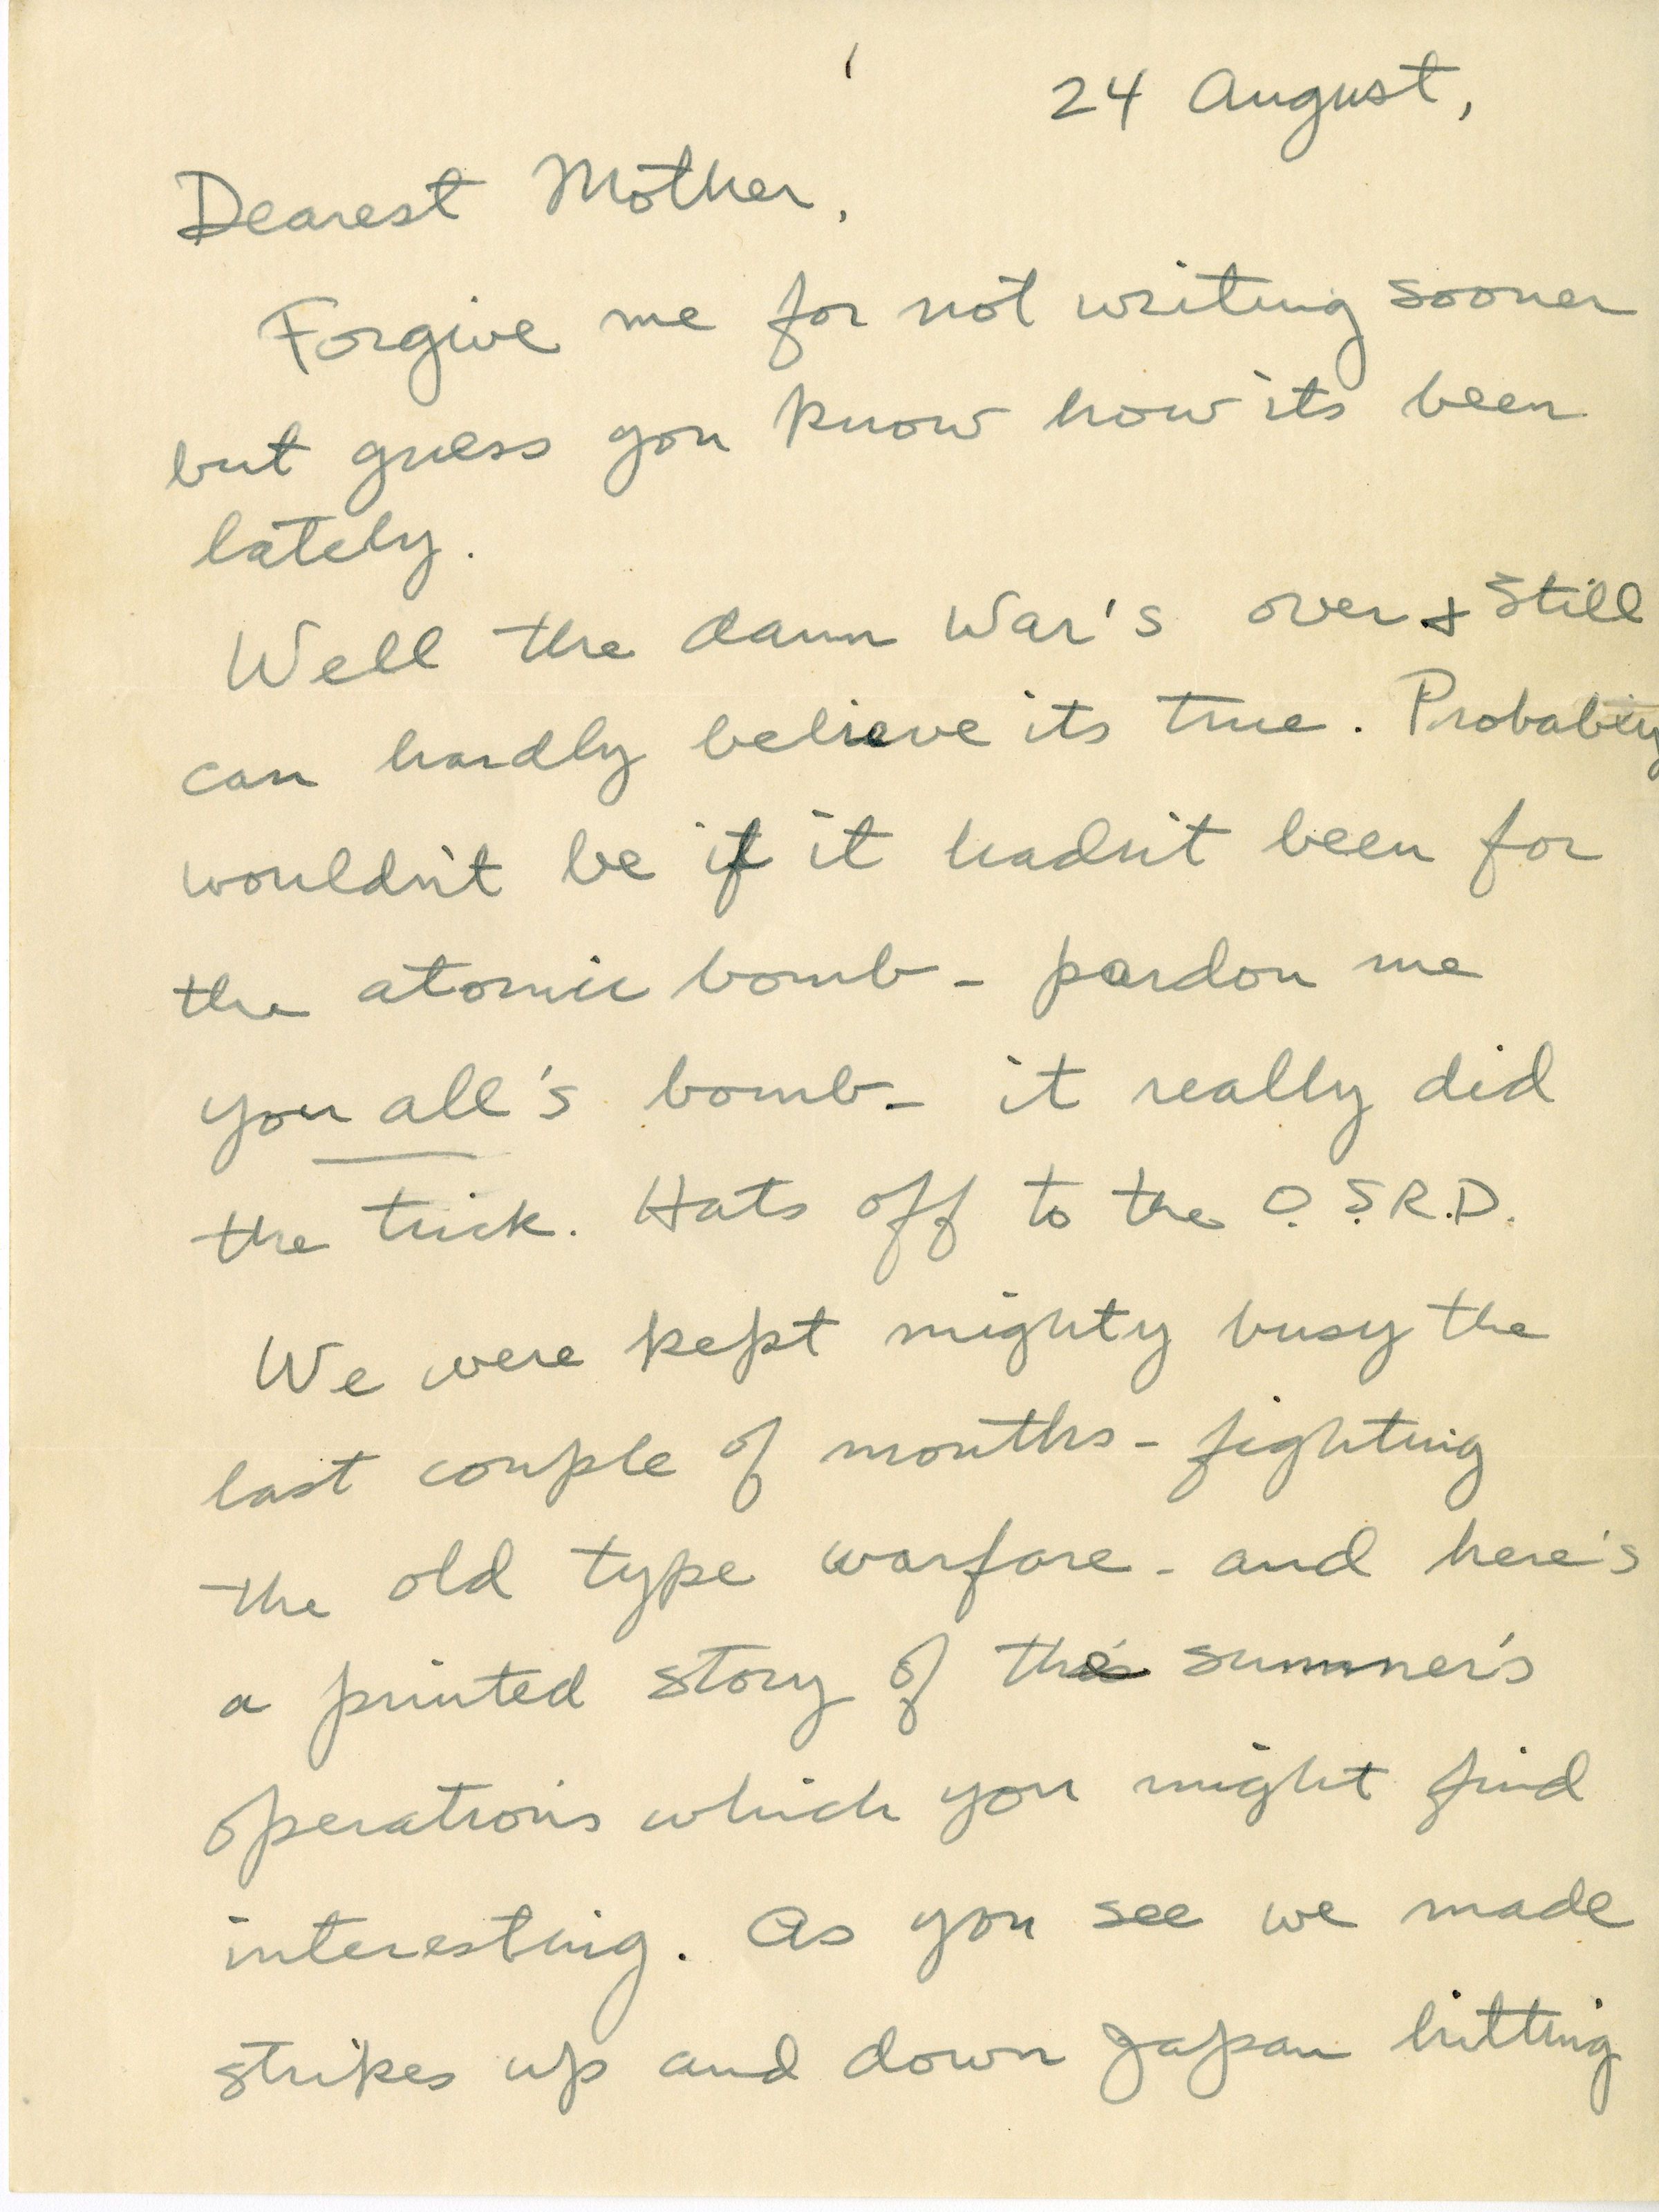 24 August,
Dearest Mother,
Forgive me for not writing sooner
but guess you know how its been
lately.
Well the damn War's over & still
can hardly believe its true. Probably
wouldn't be if it hadn't been for
the atomic bomb - pardon me
you all's bomb - it really did
the trick. Hats off to the O.S.R.D.
We were kept mighty busy the
last couple of months - fighting
the old type warfare - and here's
a printed story of the summer's
operations which you might find
interesting. As you see we made
strikes up and down Japan hitting